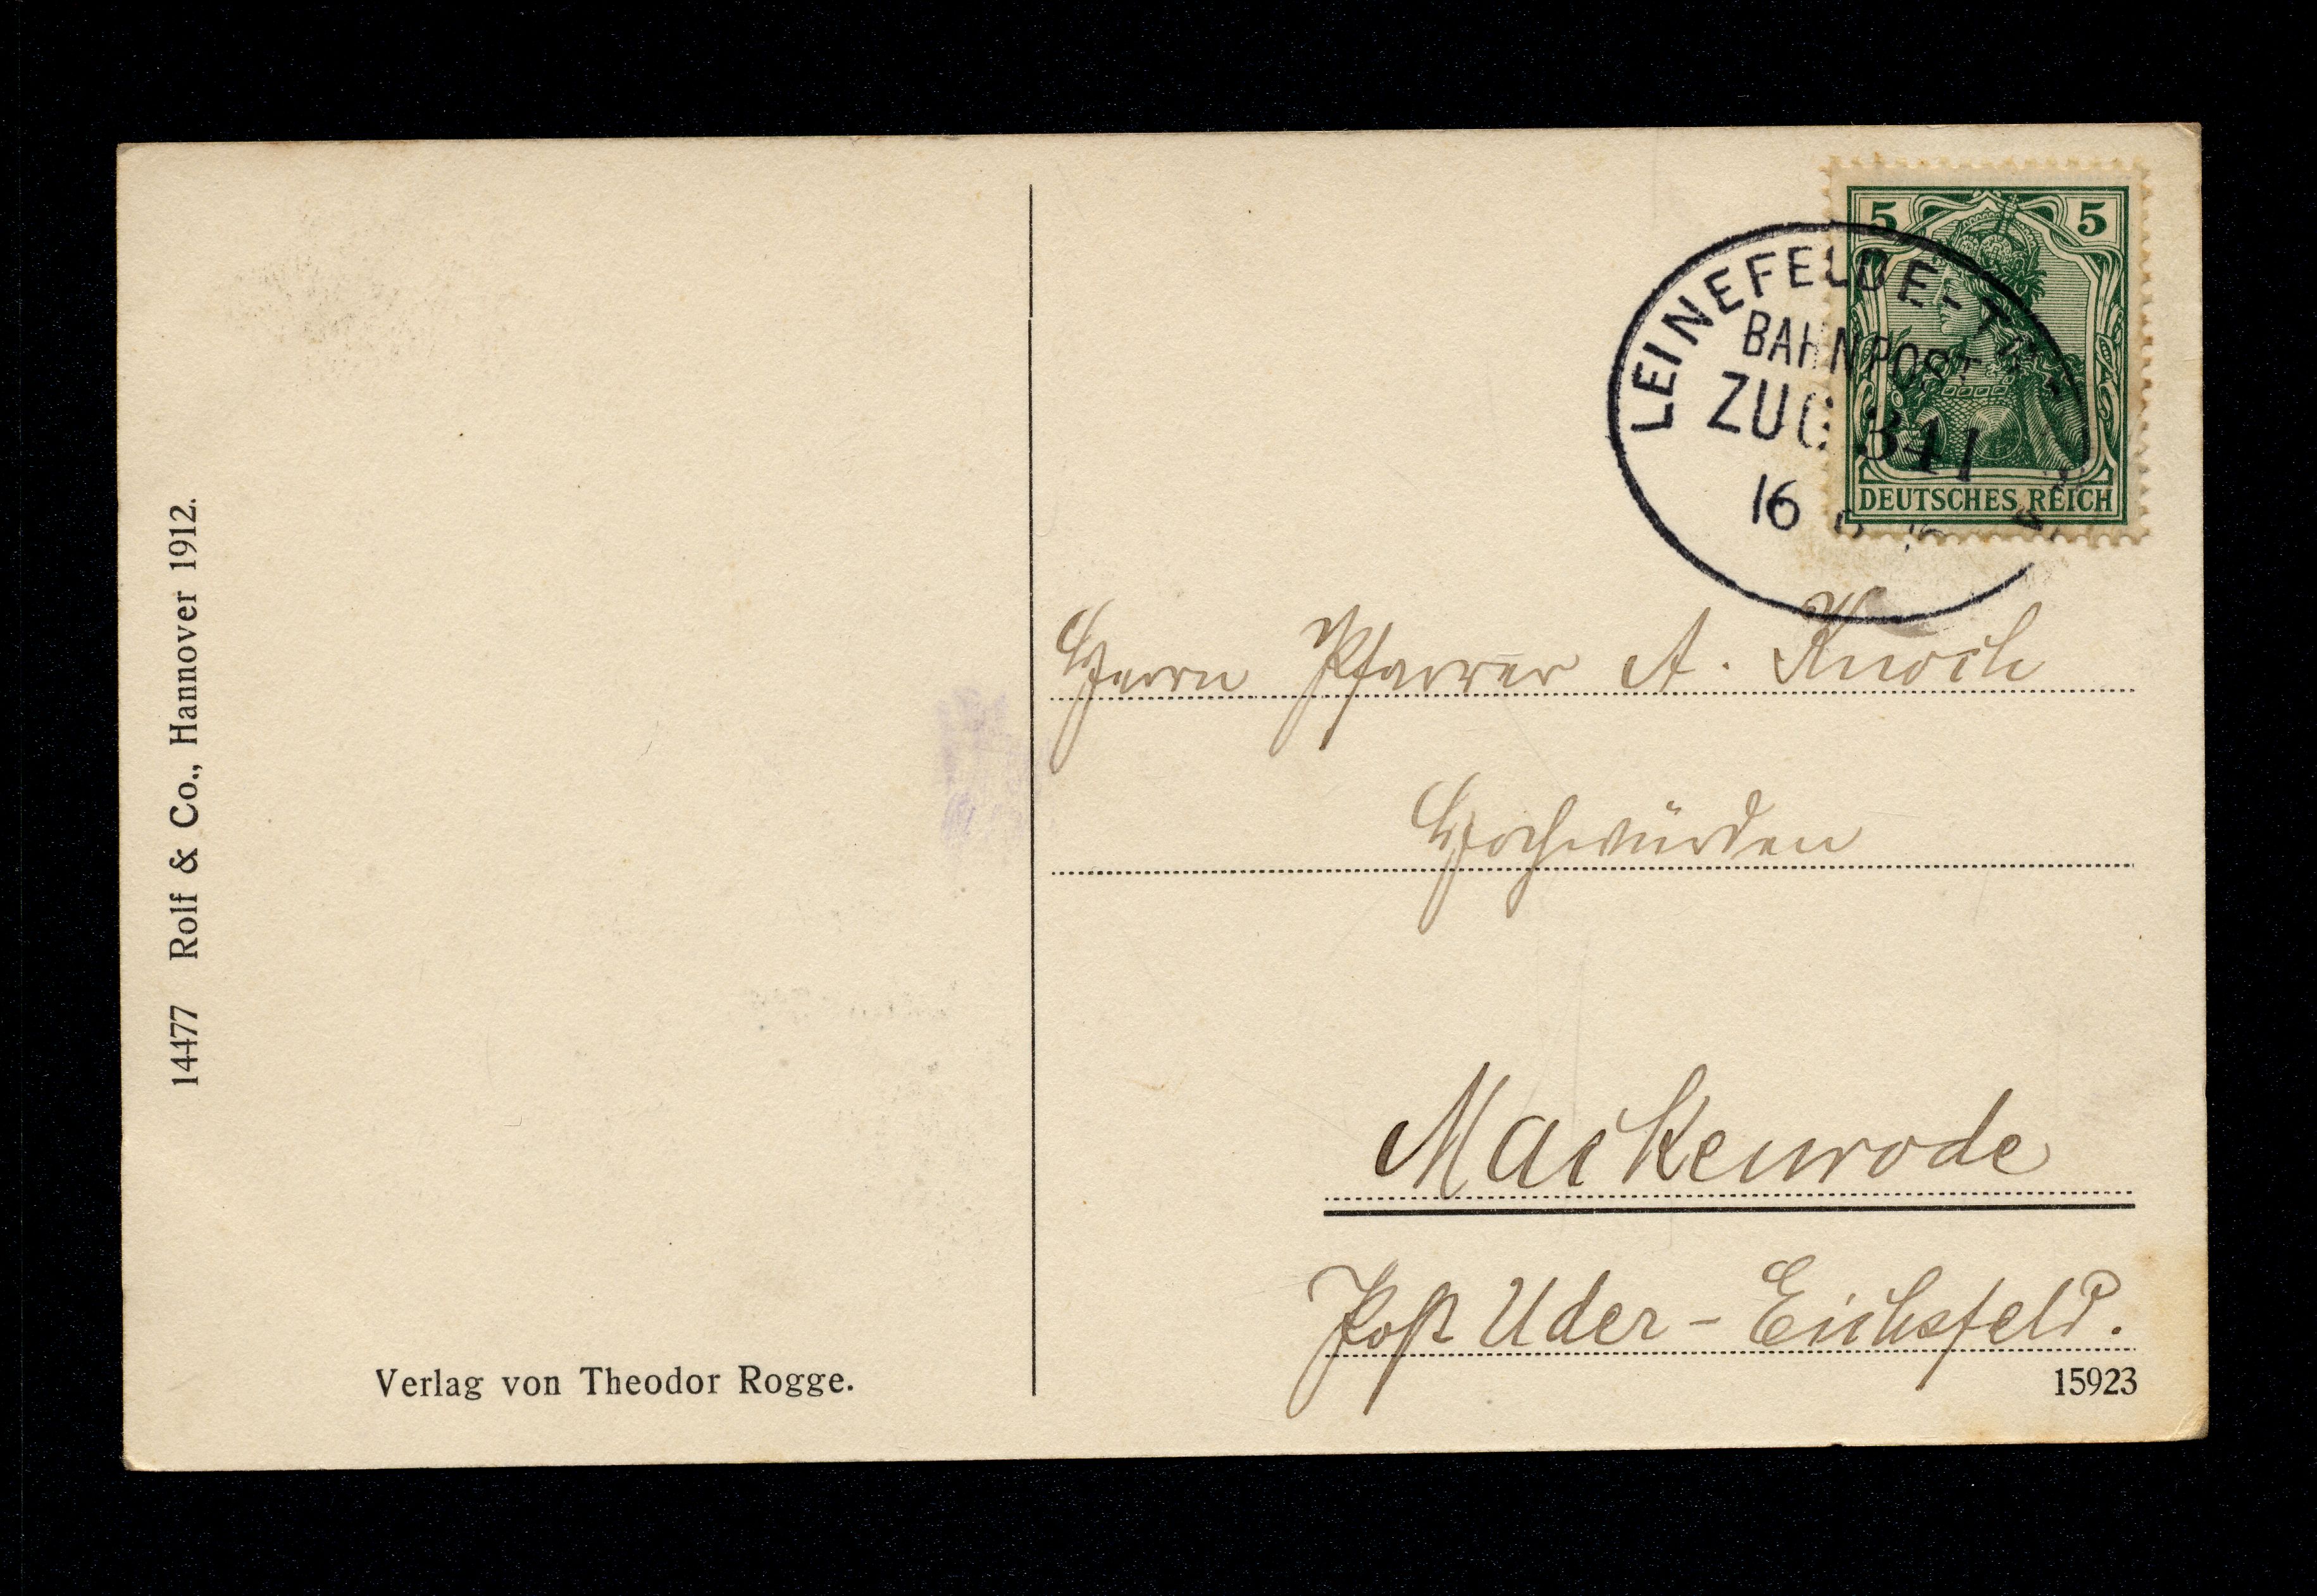 14477 Rolf & Co., Hannover 1912.
Verlag von Theodor Rogge.
5 5
DEUTSCHES REICH
LEINEFELDE-
BAHNPOST
ZUG 341
16
Herrn Pfarrer A. Knoch
Hochwürden
Mackenrode
Post Uder - Eichsfeld.
15923